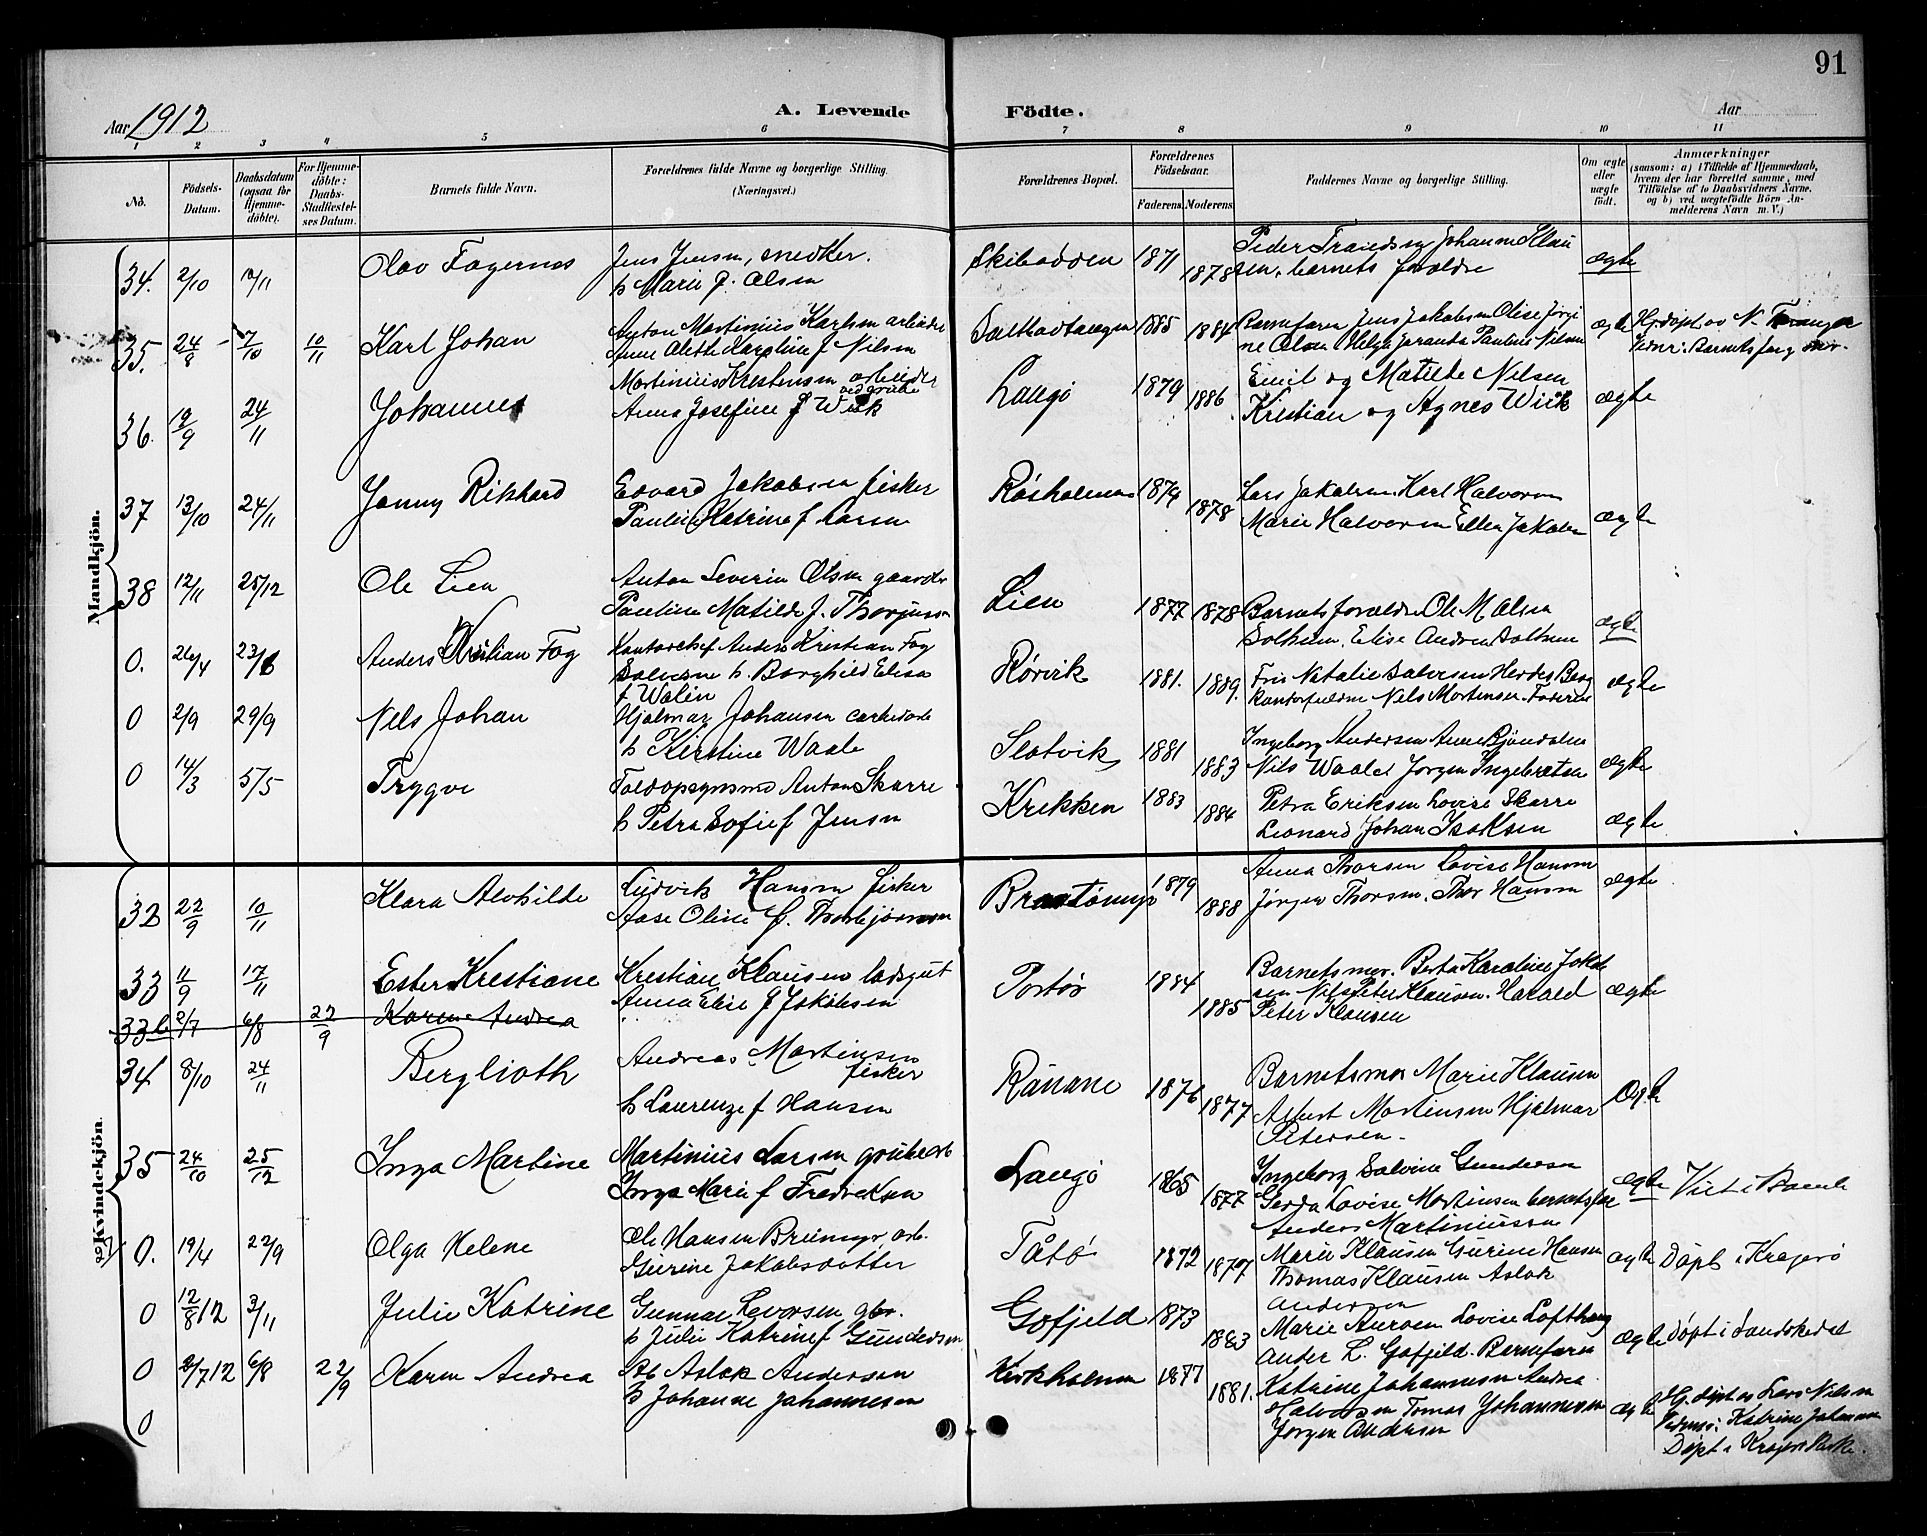 91
Aar 1912
A. Levende Födte.
Aar
1 2 3 4 5 6 7 8 9 10 11
No.
Födsels-Datum.
Daabsdatum (ogsaa for Hjemme-döbte).
For Hjemme-döbte: Daabs Stadfæstel-ses Datum.
Barnets fulde Navn.
Forældrenes fulde Navne og borgerlige Stilling. (Næringsvei.)
Forældrenes Bopæl.
Forældrenes Födselsaar.
Faderens. Moderens.
Faddernes Navne og borgerlige Stilling.
Om ægte eller uægte födt.
Anmærkninger (saasom: a) i Tilfælde af Hjemmedaab, hvem der har forrettet samme, med Tilföielse af to Daabsvidners Navne, og b) ved uægtefödte Börn An-melderens Navn m. V.)
Mandkjön.
34. 2/10 10/11 Olav Fagernes Jens Jensen, snedker. Skibodden 1871 1878 ægte
h Marie f. Olsen
sen. barnets forældre
35. 24/8 7/10 10/11 Karl Johan Anton Martinius Karlsen arbeider 1885 1884 Barnefaren Jens Jakobsen Olise Jørgi
Anne Alette Karoline f Nilsen ne Olsen Helga Paulius Nilsen ægte Hj.døpt av N.
Vidner: Barnets far og mor.
36. 9/9 24/11 Johannes Martinius Kristensen arbeider ved grube Langø 1879 1886 Emil og Matilde Nilsen
Anna Josefine f Wiik Kristian og Agnes Wiik ægte
37 13/10 24/11 Jonny Rikhard Edvard Jakobsen fisker Røsholmen 1874 1878 Lars Jakobsen Karl Halvorsen
Pauline Katrine f Larsen Marie Halvorsen Ellen Jakobsen ægte
38 12/11 25/12 Ole Lien Anton Severin Olsen gaardbr Lien 1877 1878 Barnets forældre Ole M Olsen
Pauline Matilde f. Thorjussen Solheim, Elise Andrea Solheim ægte
0. 26/4 23/6 Anders Kristian Fog Kontorchef Anders Kristian Fog Rørvik 1881. 1889. Frk Natalie Salvesen Herdis Berg
Salvesen h. Borghild Elisa f Walin Nils Mortensen. Faderen ægte
0 2/9 29/9 Nils Johan Hjalmar Johansen Slotvik 1881 1883 Ingeborg Andersen Anne Bjöndalen
h Kirstine Waale Nils Waale Jørgen Ingebretsen ægte
0 14/3 5/5 Trygve Toldopsynsmd Anton Skarre Krikken 1883 1884 Petra Eriksen Lovise Skarre
h Petra Sofie f Jensen Leonard Johan Isaksen ægte
Kvindekjön.
32 22/9 10/11 Klara Alvhilde Ludvik Hansen fisker 1879 1888 Anna Thorsen Lovise Hansen
Aase Oline f. Thorbjørnsen Jørgen Thorsen. Thor Hansen ægte
33 11/9 17/11 Ester Kristiane Kristian Klausen lodsgut Portør 1884 1885 Barnets mor. Berta Karoline Jakob
Anna Elise f Jakobsen sen Nils Peter Klausen. Harald
Peter Klausen ægte
33b 2/7 6/8 22/9 Karen Andrea
34 8/10 24/11 Berglioth Andreas Martinsen fisker Rånane 1876 1877 Barnets mor Marie Klausen
h Laurenze f Hansen Albert Martinsen Hjalmar
Petersen. ægte
35 24/10 25/12 Inga Martine Martinius Larsen grubearb Langø 1865 1877 Ingeborg Salvine Gundersen
Inga Marie f Fredriksen Gerda Lovise Mortinsen barnets far
Anders Martiniussen ægte Viet i Bamle
0. 19/4 22/9 Olga Helene Ole Hansen Brumyr arb. Tåtø 1872 1877 Marie Klausen Gurine Hansen
Gurine Jakobsdotter Thomas Klausen Aslak
Andersen ægte Døpt i Kragerø
0 12/8 12 3/11 Julie Katrine Gunnar Levorsen gbr. Gofjeld 1873 1883 Marie Aurosen Lovise Lofthaug
h Julie Katrine f Gundersen Anders L. Gofjeld. Barnefaren ægte døpt i Sandøkedal
0 2/7 12 6/8 22/9 Karen Andrea Aslak Andersen Kirkholmen 1877 1881. Katrine Johannesen Andrea
h Johanne Johannesen Halvorsen Tomas Johannesen
Jørgen Andersen ægte Hj. døpt av Lars Nilsen
Vidnesb: Katrine Johannesen
Døpt i Kragerø kirke.
0